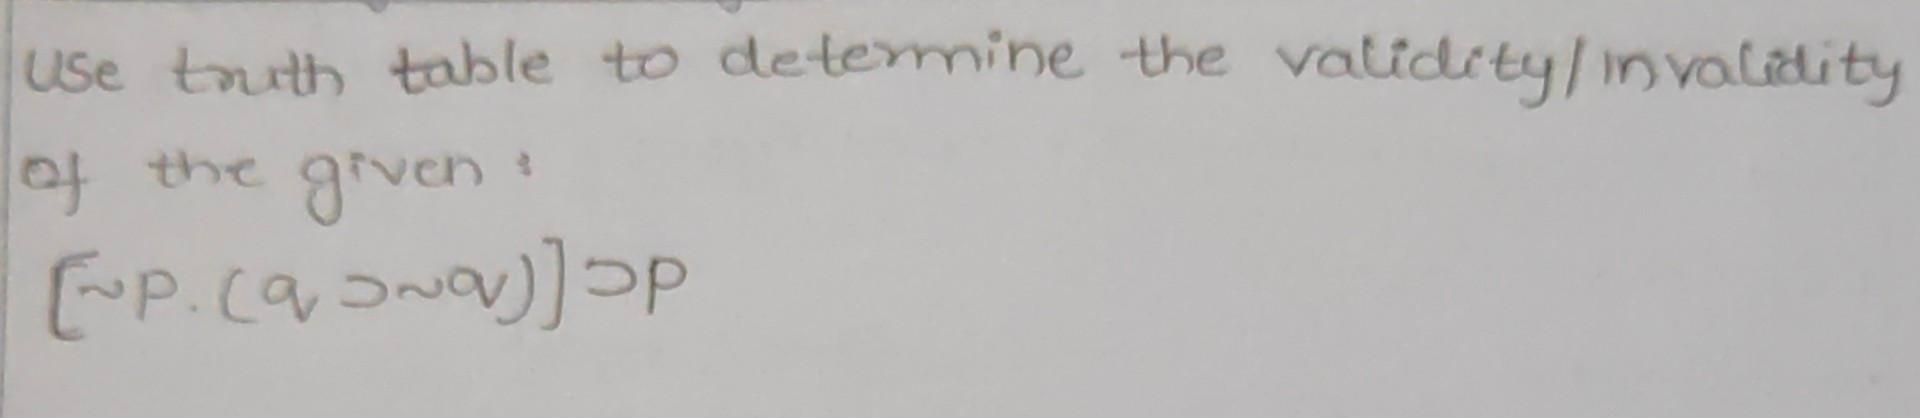 Use truth table to determine the validity/invalidity
of the given :
[~p.(q⊃~q)]⊃p